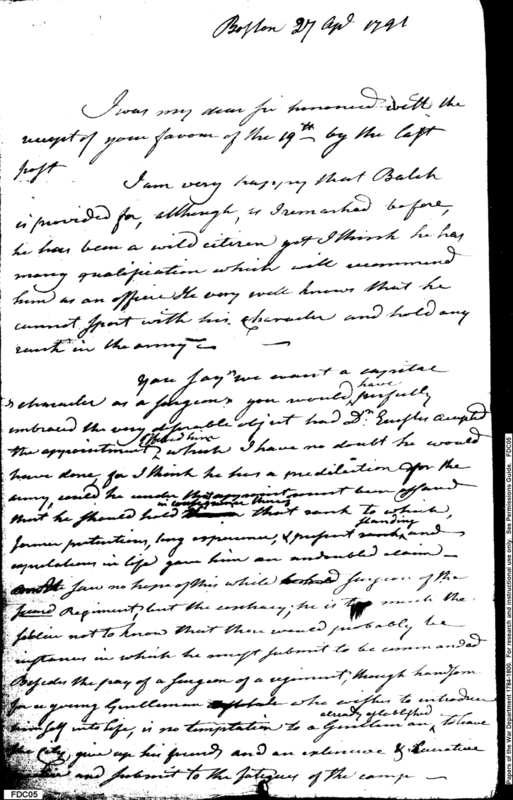 Boston 27 Apl 1791
I was my dear sir honoured with the
receipt of your favour of the 19th by the last
post
I am very happy that Balch
is provided for, although, as I remarked before,
he has been a wild citizen yet I think he has
many qualification which will recommend
him as an officer He very well knows that he
cannot sport with his character and hold any
rank in the army —
You say "we want a capital
character as a surgeon" you would have perfectly
embraced the very desirable object had Dr. Eustis accepted
the appointment offered him which I have no doubt he would
have done, for I think he has a predilection for the
army, could he under
that he should hold that rank to which,
former pretentions, long experience, & present standing and
expectations in life gave him an undoubted claim —
saw no hope of this while surgeon of the
second Regiment, but the contrary; he is too much the
soldier not to know that there would probably be
instances in which he must submit to be commanded
Besides the pay of a surgeon of a regiment, though handsome
for a young Gentleman who wishes to introduce
himself into life, is no temptation to a Gentleman already established to leave
the City, give up his friends and an extensive & lucrative
and submit to the fatigues of the camp —
FDC05
Papers of the War Department 1784-1800. For research and instructional use only. See Permissions Guide. FDC05